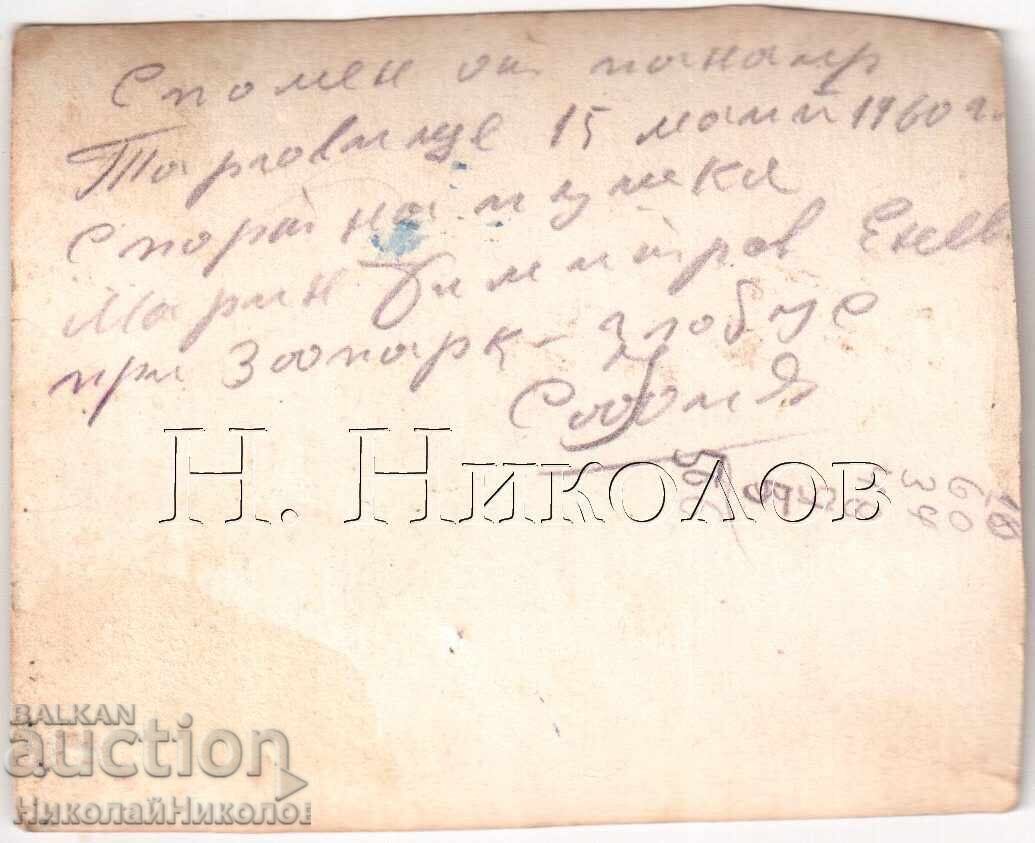 Спомен от панаир
Тарговище 15 май 1960 г.
Спортна
Марин Димитров Енев
при Зоопарк - глобус
София
Н. Николов
BALKAN
auction
НиколайНиколов